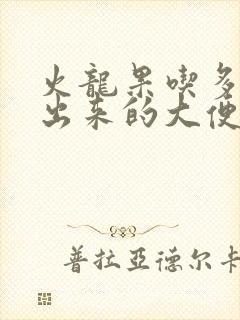 火龍果喫多
出来的大便
普拉亞德尔卡